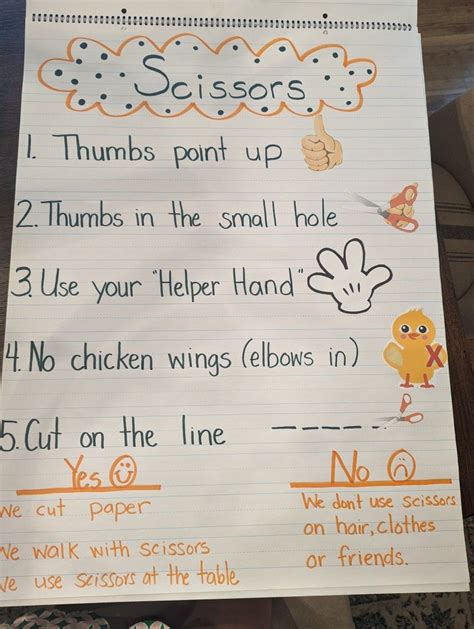 Scissors
1. Thumbs point up
2. Thumbs in the small hole
3. Use your "Helper Hand"
4. No chicken wings (elbows in)
X
5. Cut on the line
Yes
We cut paper
We walk with scissors
We use scissors at the table
No
We dont use scissors
on hair, clothes
or friends.